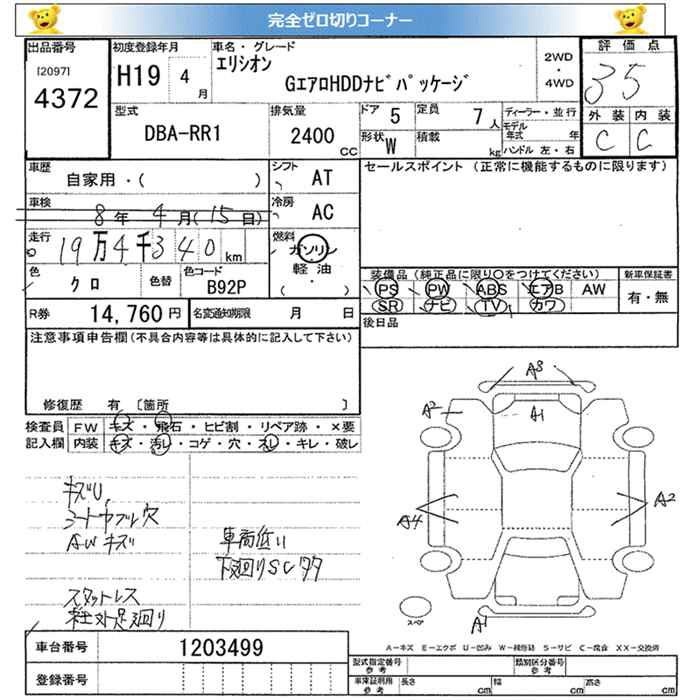 完全ゼロ切りコーナー
出品番号
[2097]
4372
初度登録年月
H19 4月
車名・グレード
エリシオン
GエアロHDDナビパッケージ
2WD
・
4WD
評価点
35
外装 内装
C C
型式
DBA-RR1
排気量
2400 CC
ドア 5
定員 7人
形状 W
積載 kg
ディーラー・並行
モデル年式 年
ハンドル 左・右
車歴
自家用・( )
シフト AT
車検
8年 4月(15日)
冷房 AC
走行
19万4千340km
燃料
ガソリン
軽油
( ・ )
色 クロ
色替
色コード B92P
R券 14,760円
名変通知期限 月 日
セールスポイント (正常に機能するものに限ります)
装備品(純正品に限り○をつけてください)
新車保証書
PS PW ABS エアB AW
SR ナビ TV カワ
有・無
後日品
注意事項申告欄(不具合内容等は具体的に記入して下さい)
修復歴 有 [箇所 ]
検査員記入欄
FW キズ・飛石・ヒビ割・リペア跡・×要
内装 キズ・汚レ・コゲ・穴・スレ・キレ・破レ
キズU,
シートウラ穴
AWキズ
車高低い
下廻りSCクク
スタットレス
A3
A2
A1
A4
A2
A1
スペア
A-キズ E-エクボ U-凹み W-補修跡 S-サビ C-腐食 XX-交換済
車台番号 1203499
登録番号
型式指定番号
参考
類別区分番号
参考
車庫証明用
参考
長さ cm
幅 cm
高さ cm